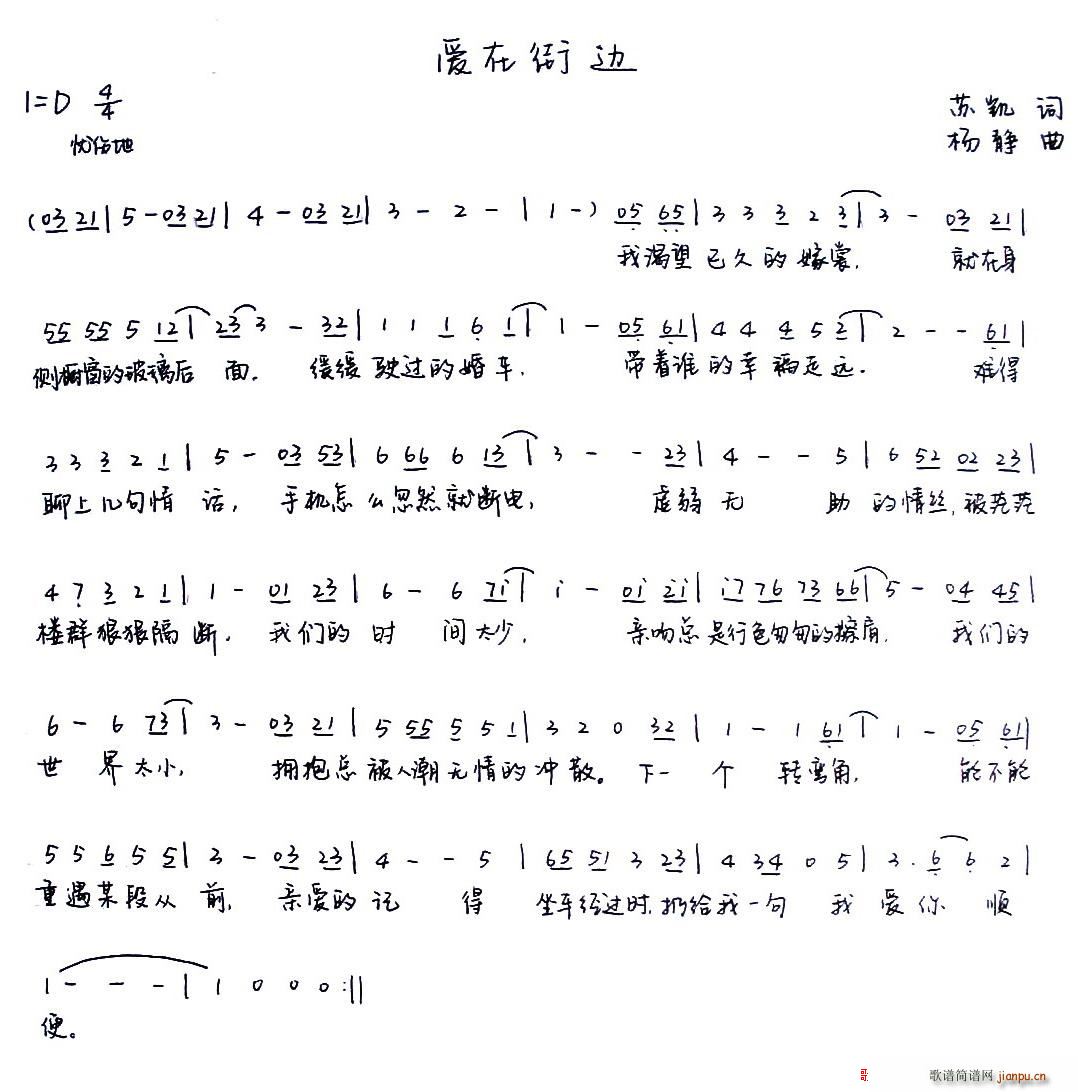 爱在街边
1=D 4/4
苏凯 词
忧伤地
杨静 曲
(03 21 | 5 - 03 21 | 4 - 03 21 | 3 - 2 - | 1 - ) 05 65 | 3 3 3 2 3 | 3 - 03 21 |
我渴望已久的嫁裳, 就在身
55 55 5 12 | 23 3 - 32 | 1 1 1 6 1 | 1 - 05 61 | 4 4 4 5 2 | 2 - - 61 |
侧橱窗的玻璃后 面. 缓缓驶过的婚车, 带着谁的幸福走远. 难得
3 3 3 2 1 | 5 - 03 53 | 6 66 6 13 | 3 - - 23 | 4 - - 5 | 6 52 02 23 |
聊上几句情 话, 手机怎么忽然就断电, 虚弱无 助 的情丝, 被茫茫
4 7 3 2 1 | 1 - 01 23 | 6 - 6 7i | i - 0i 2i | i7 76 73 66 | 5 - 04 45 |
楼群狠狠隔 断. 我们的 时 间太少, 亲吻总是行色匆匆的擦肩, 我们的
6 - 6 73 | 3 - 03 21 | 5 55 5 5 1 | 3 2 0 32 | 1 - 1 61 | 1 - 05 61 |
世 界太小, 拥抱总被人潮无情的冲散。下一 个 转弯角, 能不能
5 5 6 5 5 | 3 - 03 23 | 4 - - 5 | 65 51 3 23 | 4 34 0 5 | 3. 6 6 2 |
重遇某段从 前, 亲爱的记 得 坐车经过时, 扔给我一句 我 爱你 顺
1 - - - | 1 0 0 0 :||
便。
歌谱简谱网
jianpu.cn